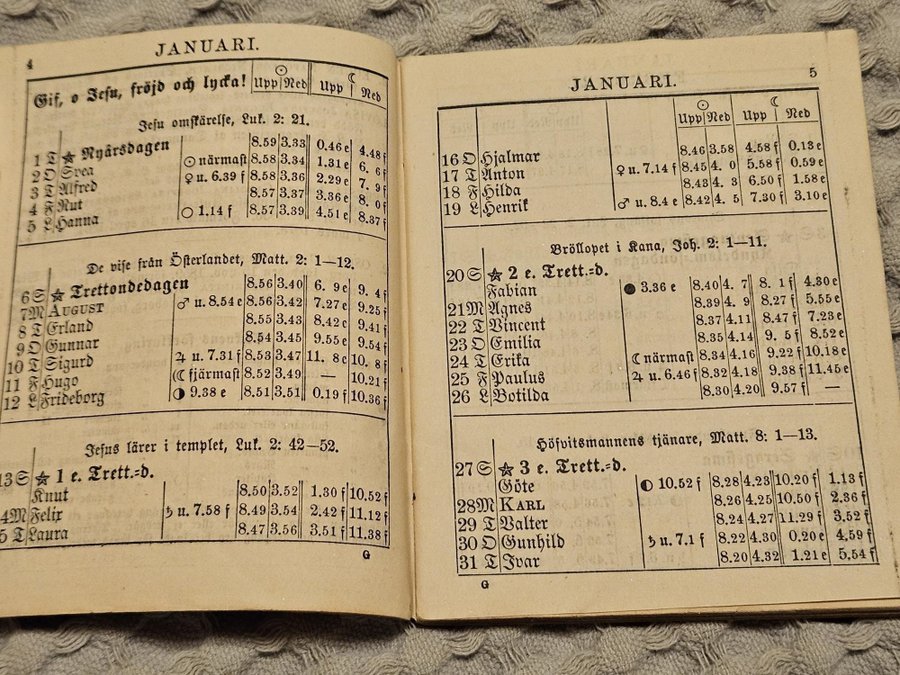 4
JANUARI.
Gif, o Jesu, fröjd och lycka! ☉ Upp Ned ☾ Upp Ned
Jesu omskärelse, Luk. 2: 21.
1 T ☆ Nyårsdagen 8.59 3.33 0.46 e 4.48 f
2 O Svea ☉ närmast 8.58 3.34 1.31 e 6. 6 f
3 T Alfred ♀ u. 6.39 f 8.58 3.36 2.29 e 7. 9 f
4 F Rut 8.57 3.37 3.36 e 8. 0 f
5 L Hanna ○ 1.14 f 8.57 3.39 4.51 e 8.37 f
De vise från Österlandet, Matt. 2: 1—12.
6 S ☆ Trettondedagen 8.56 3.40 6. 9 e 9. 4 f
7 M AUGUST ♂ u. 8.54 e 8.56 3.42 7.27 e 9.25 f
8 T Erland 8.55 3.43 8.42 e 9.41 f
9 O Gunnar 8.54 3.45 9.55 e 9.54 f
10 T Sigurd ♃ u. 7.31 f 8.53 3.47 11. 8 e 10. 8 f
11 F Hugo ☾ fjärmast 8.52 3.49 — 10.21 f
12 L Frideborg ◑ 9.38 e 8.51 3.51 0.19 f 10.36 f
Jesus lärer i templet, Luk. 2: 42—52.
13 S ☆ 1 e. Trett.=d.
Knut 8.50 3.52 1.30 f 10.52 f
4 M Felix ♄ u. 7.58 f 8.49 3.54 2.42 f 11.12 f
5 T Laura 8.47 3.56 3.51 f 11.38 f
G
JANUARI.
5
☉ Upp Ned ☾ Upp Ned
16 O Hjalmar 8.46 3.58 4.58 f 0.13 e
17 T Anton ♀ u. 7.14 f 8.45 4. 0 5.58 f 0.59 e
18 F Hilda 8.43 4. 3 6.50 f 1.58 e
19 L Henrik ♂ u. 8.4 e 8.42 4. 5 7.30 f 3.10 e
Bröllopet i Kana, Joh. 2: 1—11.
20 S ☆ 2 e. Trett.=d.
Fabian ● 3.36 e 8.40 4. 7 8. 1 f 4.30 e
21 M Agnes 8.39 4. 9 8.27 f 5.55 e
22 T Vincent 8.37 4.11 8.47 f 7.23 e
23 O Emilia 8.35 4.14 9. 5 f 8.52 e
24 T Erika ☾ närmast 8.34 4.16 9.22 f 10.18 e
25 F Paulus ♃ u. 6.46 f 8.32 4.18 9.38 f 11.45 e
26 L Botilda 8.30 4.20 9.57 f —
Höfvitsmannens tjänare, Matt. 8: 1—13.
27 S ☆ 3 e. Trett.=d.
Göte ◐ 10.52 f 8.28 4.23 10.20 f 1.13 f
28 M KARL 8.26 4.25 10.50 f 2.36 f
29 T Valter 8.24 4.27 11.29 f 3.52 f
30 O Gunhild ♄ u. 7.1 f 8.22 4.30 0.20 e 4.59 f
31 T Ivar 8.20 4.32 1.21 e 5.54 f
G